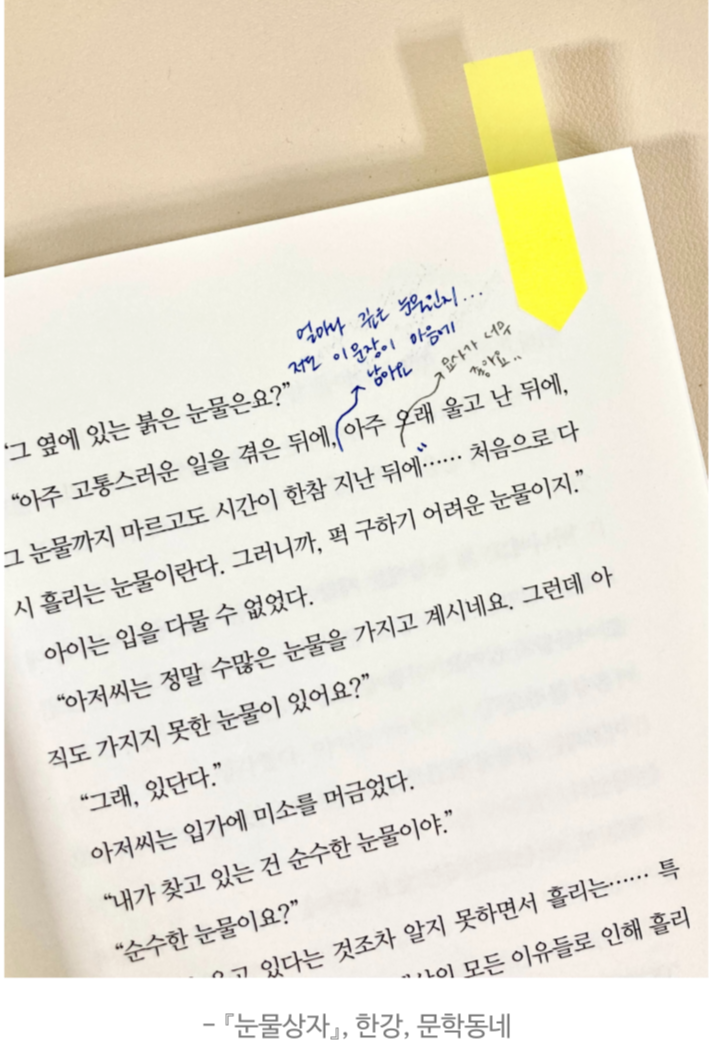 얼마나 깊은 눈물인지...
저도 이 문장이 마음에
남아요
묘사가 너무
좋아요..
“그 옆에 있는 붉은 눈물은요?”
“아주 고통스러운 일을 겪은 뒤에, 아주 오래 울고 난 뒤에,
그 눈물까지 마르고도 시간이 한참 지난 뒤에…… 처음으로 다
시 흘리는 눈물이란다. 그러니까, 퍽 구하기 어려운 눈물이지.”
아이는 입을 다물 수 없었다.
“아저씨는 정말 수많은 눈물을 가지고 계시네요. 그런데 아
직도 가지지 못한 눈물이 있어요?”
“그래, 있단다.”
아저씨는 입가에 미소를 머금었다.
“내가 찾고 있는 건 순수한 눈물이야.”
“순수한 눈물이요?”
있다는 것조차 알지 못하면서 흘리는…… 특
모든 이유들로 인해 흘리
- 『눈물상자』, 한강, 문학동네